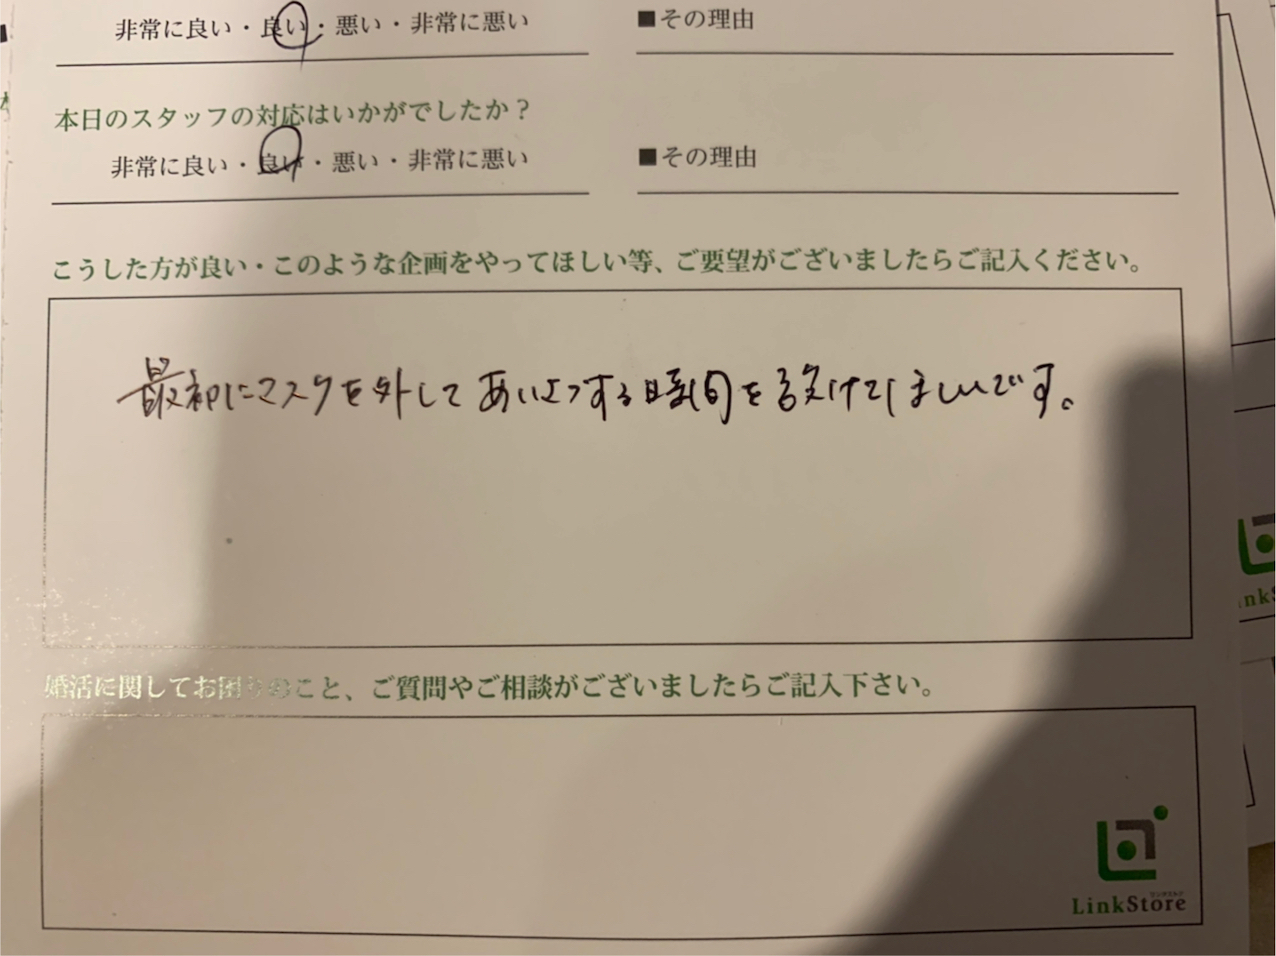 非常に良い・良い・悪い・非常に悪い
■その理由
本日のスタッフの対応はいかがでしたか？
非常に良い・良い・悪い・非常に悪い
■その理由
こうした方が良い・このような企画をやってほしい等、ご要望がございましたらご記入ください。
最初にマスクを外してあいさつする時間を設けてほしいです。
婚活に関してお困りのこと、ご質問やご相談がございましたらご記入下さい。
LinkStore